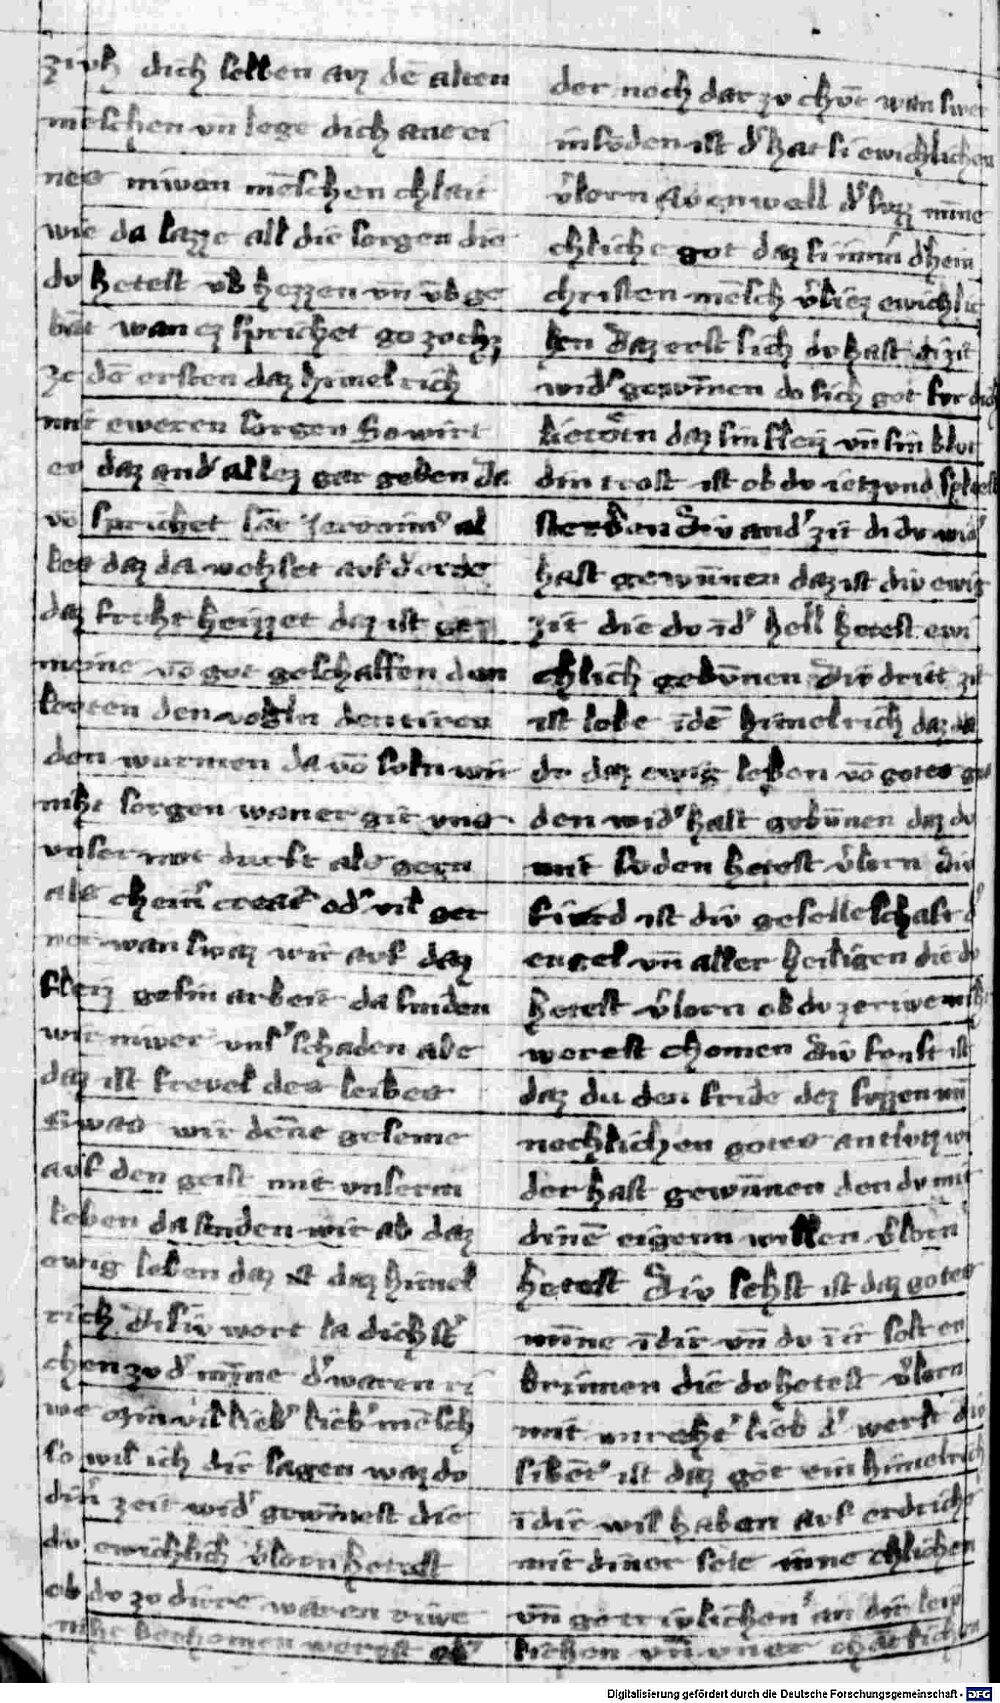 zivh dich selben auz dē alten
mēschen vn̄ lege dich an ei
nes niwen mēschen chlait
wie da lazze all die sorgen die
du hetest vb ezzen vn̄ vb ge
wan ez sprichet
ze dē ersten daz himelrich
mit eweren sorgen So wirt
ew daz and allez gar geben Da
vō sprichet sāt Jeronim al
lez daz da wehset auf d erde
daz fruht heizzet daz ist ge
meine vō got geschaffen den
levten den vogln den tiren
den wurmen da vō soln wir
niht sorgen wan er git vns
vnser not durft als gern
als creat od vil ger
ner wan swaz wir auf daz
fleiz arbeit da senden
wir niwer vns schaden abe
daz ist frevel des leibes
Swas wir dēne
auf den geist mit vnserm
leben da senden wir ab daz
ewig leben daz ist daz himel
rich Disiv wort la dich
chen zv d mīne d waren ri
we vil lieb mēsch
so wil ich dir sagen waz du
din zeit wid gewinnest die
du ewichlich vlorn hetest
ob du zv waren riwe
niht bechomen werest ob
der noch dar zv chvt wan swer
in svden ist d hat si ewichlichen
vlorn Av enwoll d svzz mīne
chliche got daz si imm dhein
christen mēsch vliez ewichlic
hen Daz erst sich du hast di zit
wid gewinnen do sich got fvr dich
lie totn daz sin fleiz vn̄ sin blut
din trost ist ob du ietzund
sterben Div and zit di du wid
hast gewunnen daz ist div ewig
zit die du ī d hell hetest ewi
chlich gebvnen Div dritt zit
ist lobe ī dē himelrich daz da
du daz ewig leben vō gotes gna
den wid hast gebūnen daz du
mit svden hetest vlorn Div
fierd ist div geselleschaft d
engel vn̄ aller heiligen die du
hetest vlorn ob du ze riwe niht
werest chomen Div fvnft ist
daz du den fride dez svzzen mī
nechlichen gotes antlutz wi
der hast gewunnen den du mit
dinē eigenn willen vlorn
hetest Div sehst ist daz gotes
mīne ī dir vn̄ du ī ir solt en
brinnen die du hetest vlorn
mit vnreht lieb d werlt div
sibent ist daz got ein himelrich
ī dir wil haben auf erdriche
mit diner sele īnne chlichen
vn̄ an dir leip
lichen vn̄